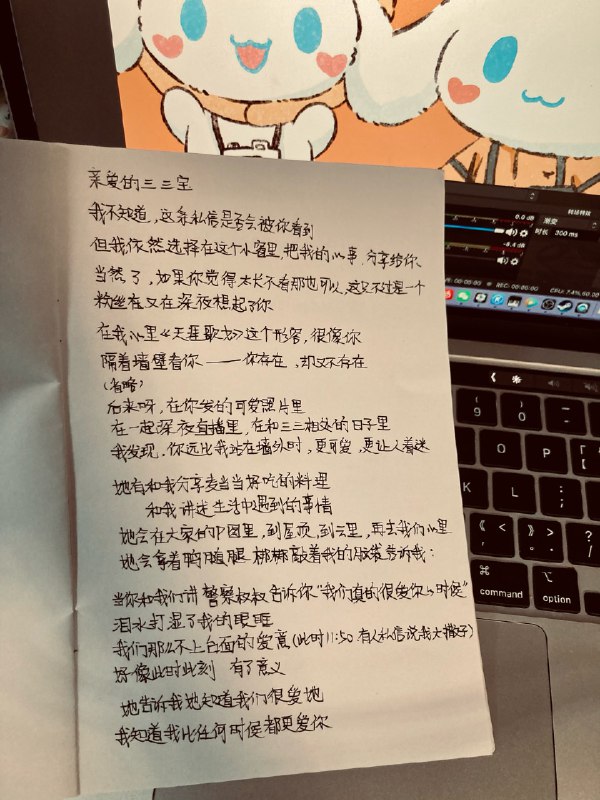 亲爱的三三宝
我不知道,这条私信是否会被你看到
但我依然选择在这个小窗里,把我的心事,分享给你
当然了,如果你觉得太长不看那也可以,这又不过是一个
粉丝在又在深夜想起了你
在我心里《天涯歌女》这个形容,很像你
隔着墙壁看你——你存在,却又不存在
(省略)
后来呀,在你发的可爱照片里
在一起深夜直播里,在和三三相处的日子里
我发现,你远比我站在墙外时,更可爱,更让人着迷
她有和我分享麦当当好吃的料理
和我讲述生活中遇到的事情
她会在大家的P图里,到屋顶,到云里,再去我们心里
她会拿着鸭腿腿 梆梆敲着我的脑袋告诉我:
当你和我们讲 警察叔叔告诉你"我们真的很爱你的时候"
泪水打湿了我的眼眶
我们那么不上台面的爱意(此时11:50 有人私信说我大撒子)
好像此时此刻 有了意义
她告诉我她知道我们很爱她
我知道我比任何时候都更爱你
0.0 dB
-8.4 dB
转场特效
渐变
时长 300 ms
REC: 00:00:00
(
9
)
0
O
P
K
L
command
option
⌘
⌥